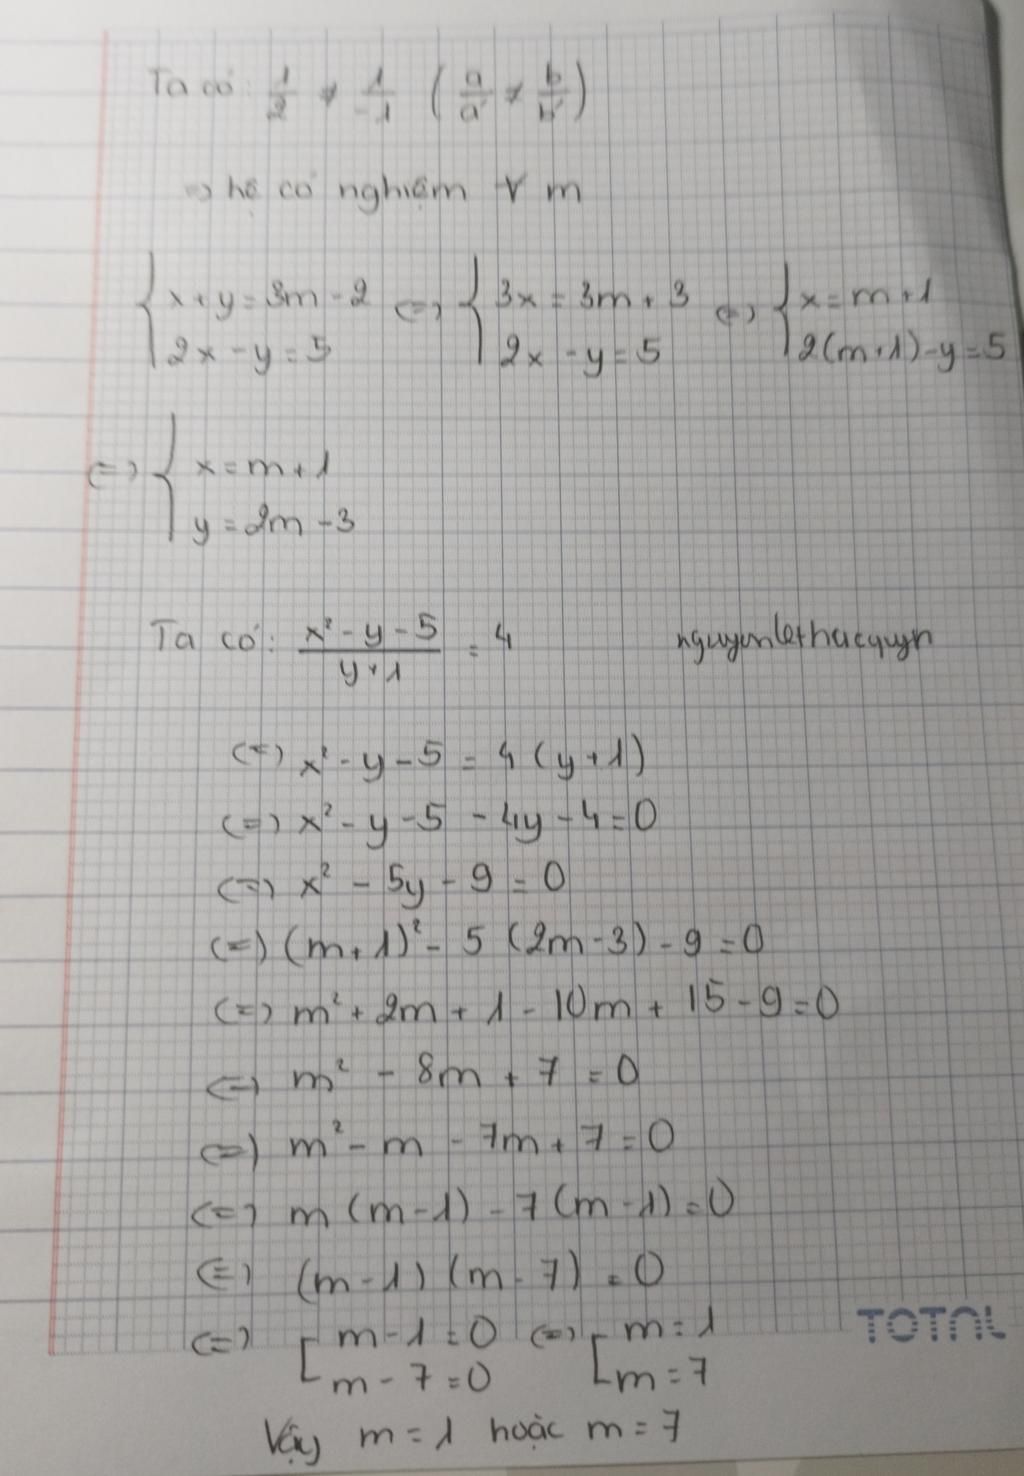 Ta có: 1/2 ≠ 1/-1 (a/a' ≠ b/b')
=> hệ có nghiệm ∀ m
{ x + y = 3m - 2 <=> { 3x = 3m + 3 <=> { x = m + 1
2x - y = 5 2x - y = 5 2(m+1) - y = 5
<=> { x = m + 1
y = 2m - 3
Ta có: (x² - y - 5)/(y + 1) = 4 nguyenlethucquyn
<=> x² - y - 5 = 4 (y + 1)
<=> x² - y - 5 - 4y - 4 = 0
<=> x² - 5y - 9 = 0
<=> (m + 1)² - 5 (2m - 3) - 9 = 0
<=> m² + 2m + 1 - 10m + 15 - 9 = 0
<=> m² - 8m + 7 = 0
<=> m² - m - 7m + 7 = 0
<=> m (m - 1) - 7 (m - 1) = 0
<=> (m - 1) (m - 7) = 0
<=> [ m - 1 = 0 <=> [ m = 1
m - 7 = 0 m = 7
TOTAL
Vậy m = 1 hoặc m = 7